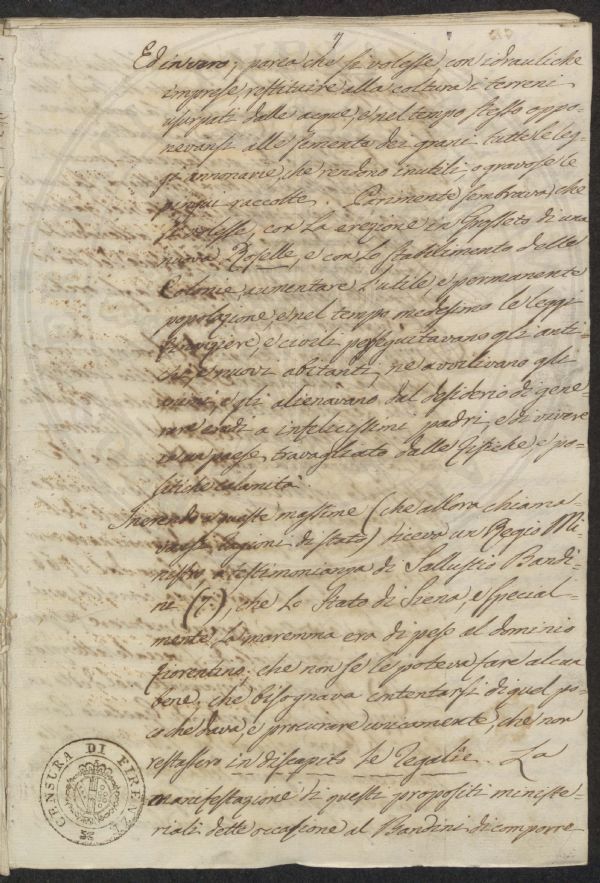 7
Ed invero; parea che si volesse con idrauliche
imprese restituire alla coltura i terreni
usurpati dalle acque, e nel tempo stesso oppo=
nevansi alle sementa dei grani tutte le leg=
gi annonarie, che rendeno inutili, o gravose le
raccolte. Parimente sembrava, che
si volesse, con la erezione in Grosseto di una
nuova Roselle, e con lo stabilimento delle
Colonie, aumentare l'utile, e permanente
popolazione, e nel tempo medesimo le leggi
e civili perseguitavano gli anti=
chi, e nuovi abitanti, ne avvilivano gli
animi, e gli alienavano dal desiderio di gene=
rare eredi a infelicissimi padri, e di vivere
in un paese travagliato dalle fisiche, e po=
litiche calamità.
Inerendo a queste massime (che allora chiama
vansi ragioni di stato) diceva un Regio Mi=
nistro, a testimonianza di Sallustio Bandi=
ni (7.), che lo Stato di Siena, e special=
mente la maremma era di peso al dominio
fiorentino; che non se le poteva fare alcun
bene; che bisognava contentarsi di quel po=
co che dava, e procurare unicamente, che non
restassero in discapito le Regalie. La
manifestazione di questi propositi ministe=
riali dette occasione al Bandini di comporre
CENSURA DI FIRENZE